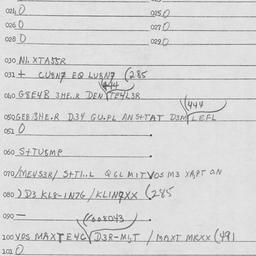 024 0
025 0
026 0
027 0
028 0
029 0
030 NL XTA5SR
031 + CU8N7 EQ LU8N7 (285
444
040 G8E4B 3HE..R DEN TE4L3R
444
050 GEB 3HE.R D34 GU.PL AN STTAT D3M LEFL
051 0
060 S+TU8MP
070 /ME4S3R/ S+TI..L QCL MIT VOS M3 XAPT AN
080 ) D3 KL8-IN7G / KLIN7XX (285
090 —
008043
100 VOS MAXT E4G D3R-M6T / MAXT MKXX (491
101 0